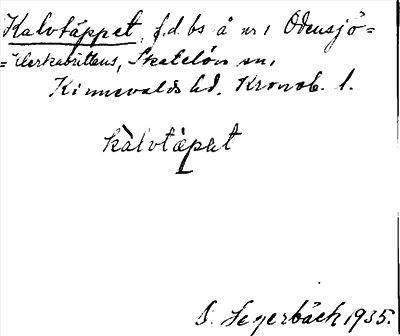 Kalvtäppet, f.d. bs å nr 1 Odensjö=
=Klerkabrittens, Skatelövs sn,
Kinnevalds hd. Kronob. l.
kàlvtäpət
B. Segerbäck 1935.